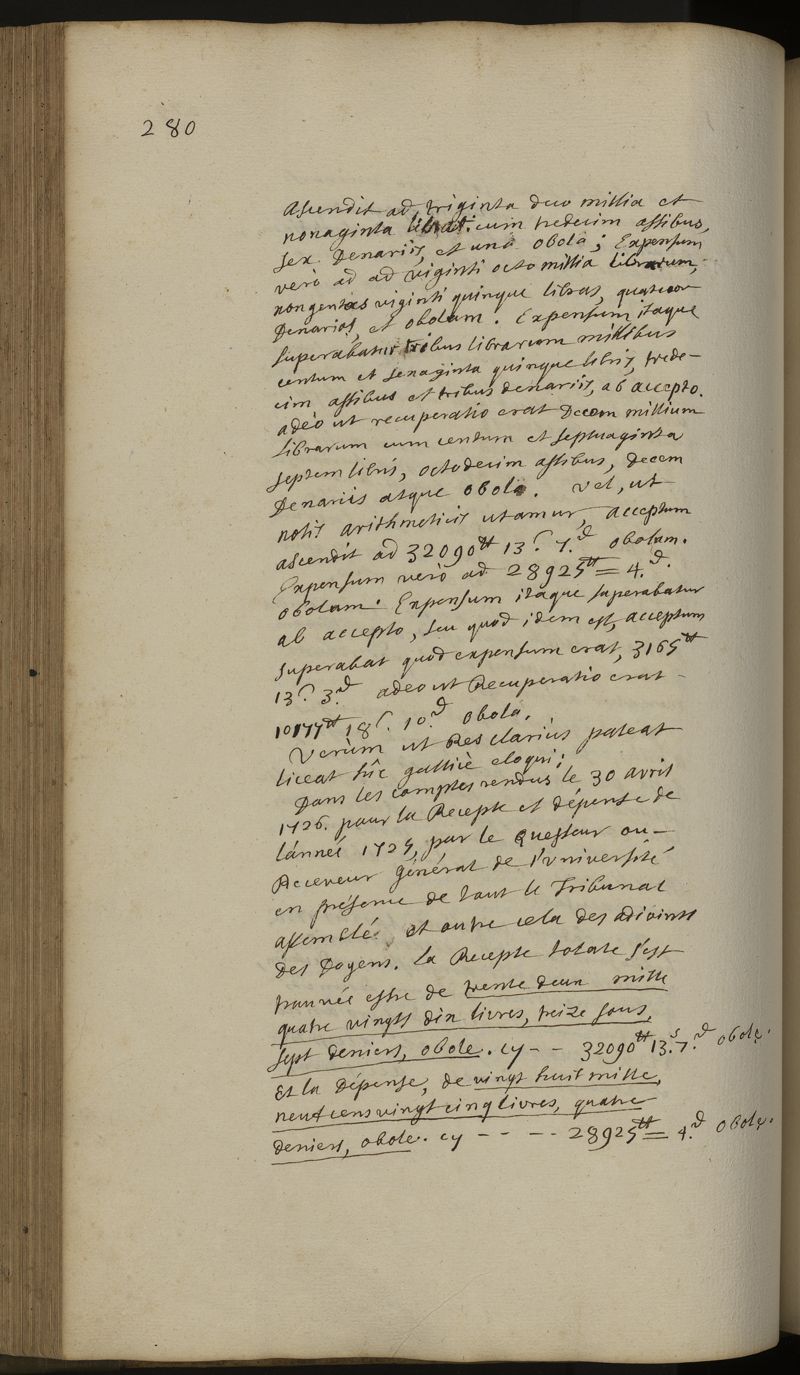 280
Ascendit ad triginta duo millia et
nonaginta libras cum tredecim assibus,
sex Denariis, et una obola; Expensum
verò ad ad viginti octo millia librarum,
nongentas viginti quinque libras, quatuor
Denarios, et obolam. Expensum itaque
superabatur tribus librarum millibus
centum et sexaginta quinque libris, trede-
cim assibus et tribus denariis, ab accepto.
adeò ut recuperatio erat Decem millium
Librarum cum centum et septuaginta
septem libris, octodecim assibus, decem
Denariis atque obola. Vel, ut
notis arithmeticis utamur, acceptum
ascendit ad 32090tt 13s. 7.d obolam.
Expensum verò ad 28925tt = 4.d.
obolam. Expensum itaque superabatur
ab accepto, seu quod idem est, acceptum
superabat quod expensum erat, 3165tt
13s. 3.d adeo ut Recuperatio erat -
10177tt 18s. 10.d obola.
Verùm ut Res clariùs pateat
liceat hîc gallicè eloqui;
Dans les comptes rendus le 30 avril
1726. pour la Recepte et dépense de
lánneé 1725, par le Questeur ou-
Receveur général de l'Université
en présence de tout le Tribunal
assemblée, et outre cela des adjoints
des Doyens. la Recepte totale s'est
trouvée estre de trente deux mille
quatre vingts dix livres, treize sous,
sept deniers, obole. cy - - 32090tt 13.s 7.d obole.
Et la Dépense, de vingt huit mille,
neuf cens vingt cinq livres, quatre
deniers, obole. cy - - - - 28925tt = 4.d obole.